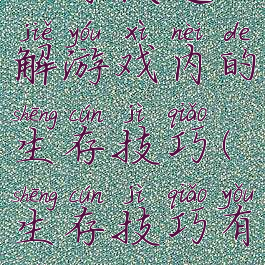 jiě yóu xì nèi de
解游戏内的
shēng cún jì qiǎo
生存技巧(
shēng cún jì qiǎo yǒu
生存技巧有